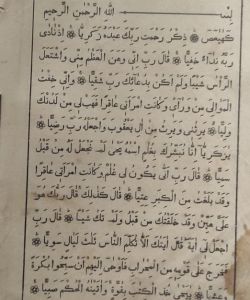 بسم الله الرحمن الرحيم
كهيعص ذكر رحمت ربك عبده زكريا اذ نادى
ربه نداء خفيا قال رب انى وهن العظم منى واشتعل
الرأس شيبا ولم اكن بدعائك رب شقيا وانى خفت
الموالى من وراى وكانت امراتى عاقرا فهب لى من لدنك
وليا يرثنى ويرث من ال يعقوب واجعله رب رضيا
يزكريا انا نبشرك بغلم اسمه يحيى لم نجعل له من قبل
سميا قال رب انى يكون لى غلم وكانت امراتى عاقرا
وقد بلغت من الكبر عتيا قال كذلك قال ربك هو
على هين وقد خلقتك من قبل ولم تك شيئا قال رب
اجعل لى اية قال ايتك الا تكلم الناس ثلث ليال سويا
فخرج على قومه من المحراب فاوحى اليهم ان سبحوا بكرة
وعشيا ييحيى خذ الكتب بقوة واتينه الحكم صبيا